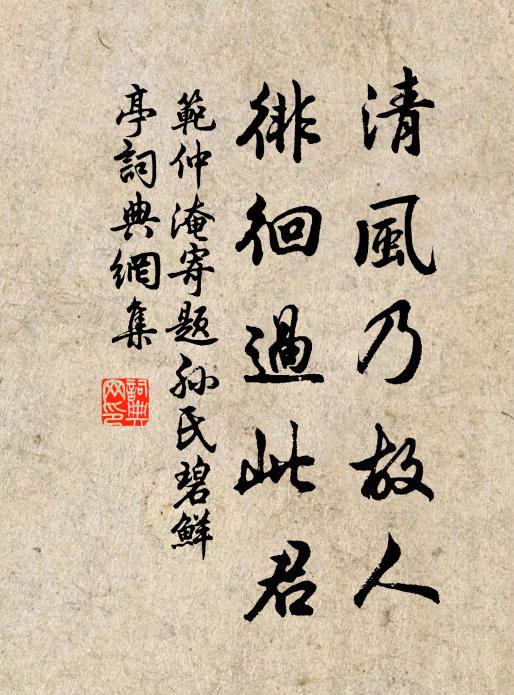 清風乃故人
徘徊過此君
範仲淹寄題孙氏碧鮮
亭詞典網集
詞典
网印